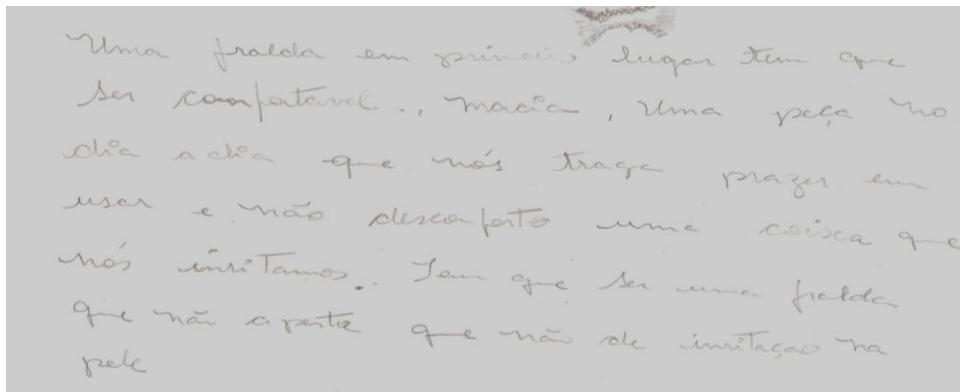 Uma fralda em princiro lugar tem que
ser comfortavel., macia, Uma peça no
dia a dia que nós traga prazer em
usar e não desconforto uma coisca que
nós inritamos.. Tem que ser uma fralda
que não aperte que não de inritaçao na
pele